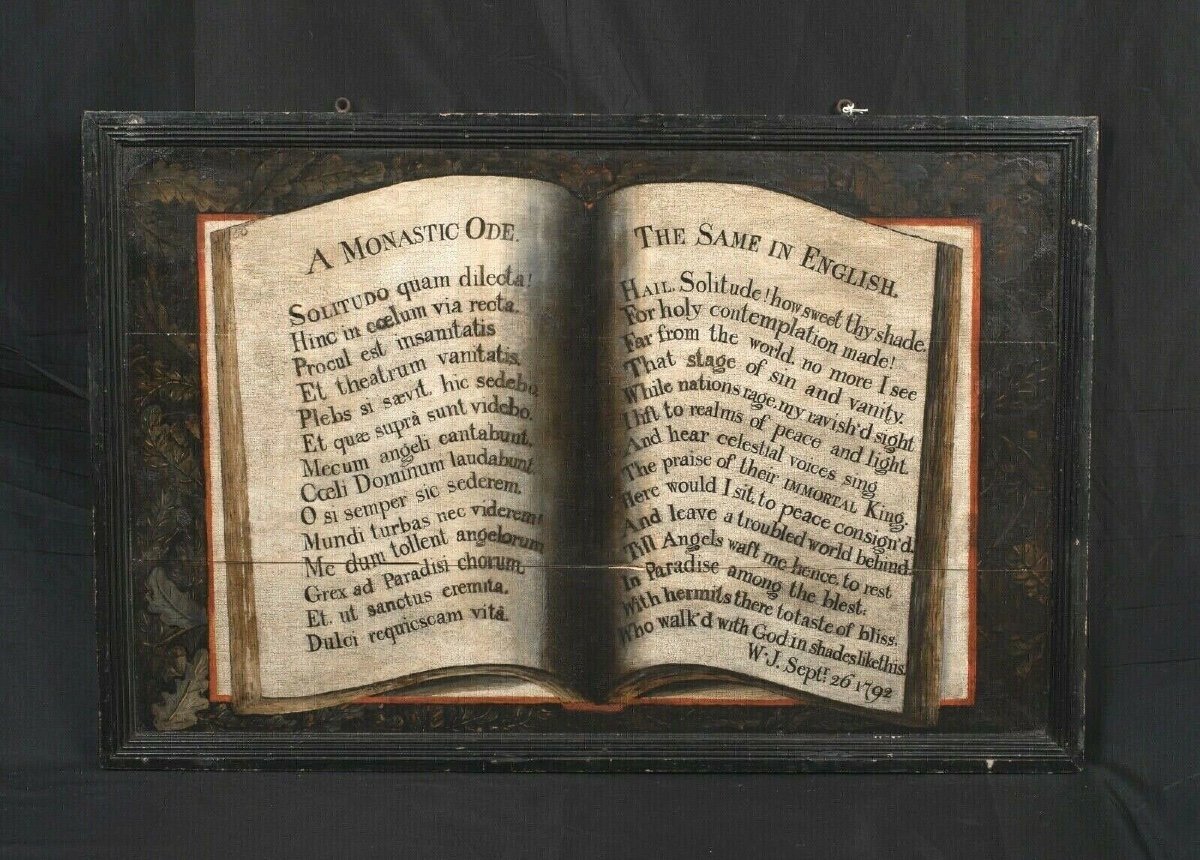 A MONASTIC ODE.
SOLITUDO quam dilecta!
Hinc in cœlum via recta.
Procul est insanitatis
Et theatrum vanitatis.
Plebs si sævit, hic sedebo,
Et quæ suprà sunt videbo.
Mecum angeli cantabunt.
Cœli Dominum laudabunt.
O si semper sic sederem.
Mundi turbas nec viderem!
Me dum tollent angelorum
Grex ad Paradisi chorum.
Et, ut sanctus eremita.
Dulci requiescam vitâ.
THE SAME IN ENGLISH.
HAIL, Solitude! how sweet thy shade.
For holy contemplation made!
Far from the world, no more I see
That stage of sin and vanity.
While nations rage, my ravish'd sight
I lift to realms of peace and light.
And hear celestial voices sing
The praise of their IMMORTAL King.
Here would I sit, to peace consign'd.
And leave a troubled world behind.
Till Angels waft me hence, to rest
In Paradise among the blest.
With hermits there to taste of bliss.
Who walk'd with God in shades like this.
W. J. Septr. 26 1792